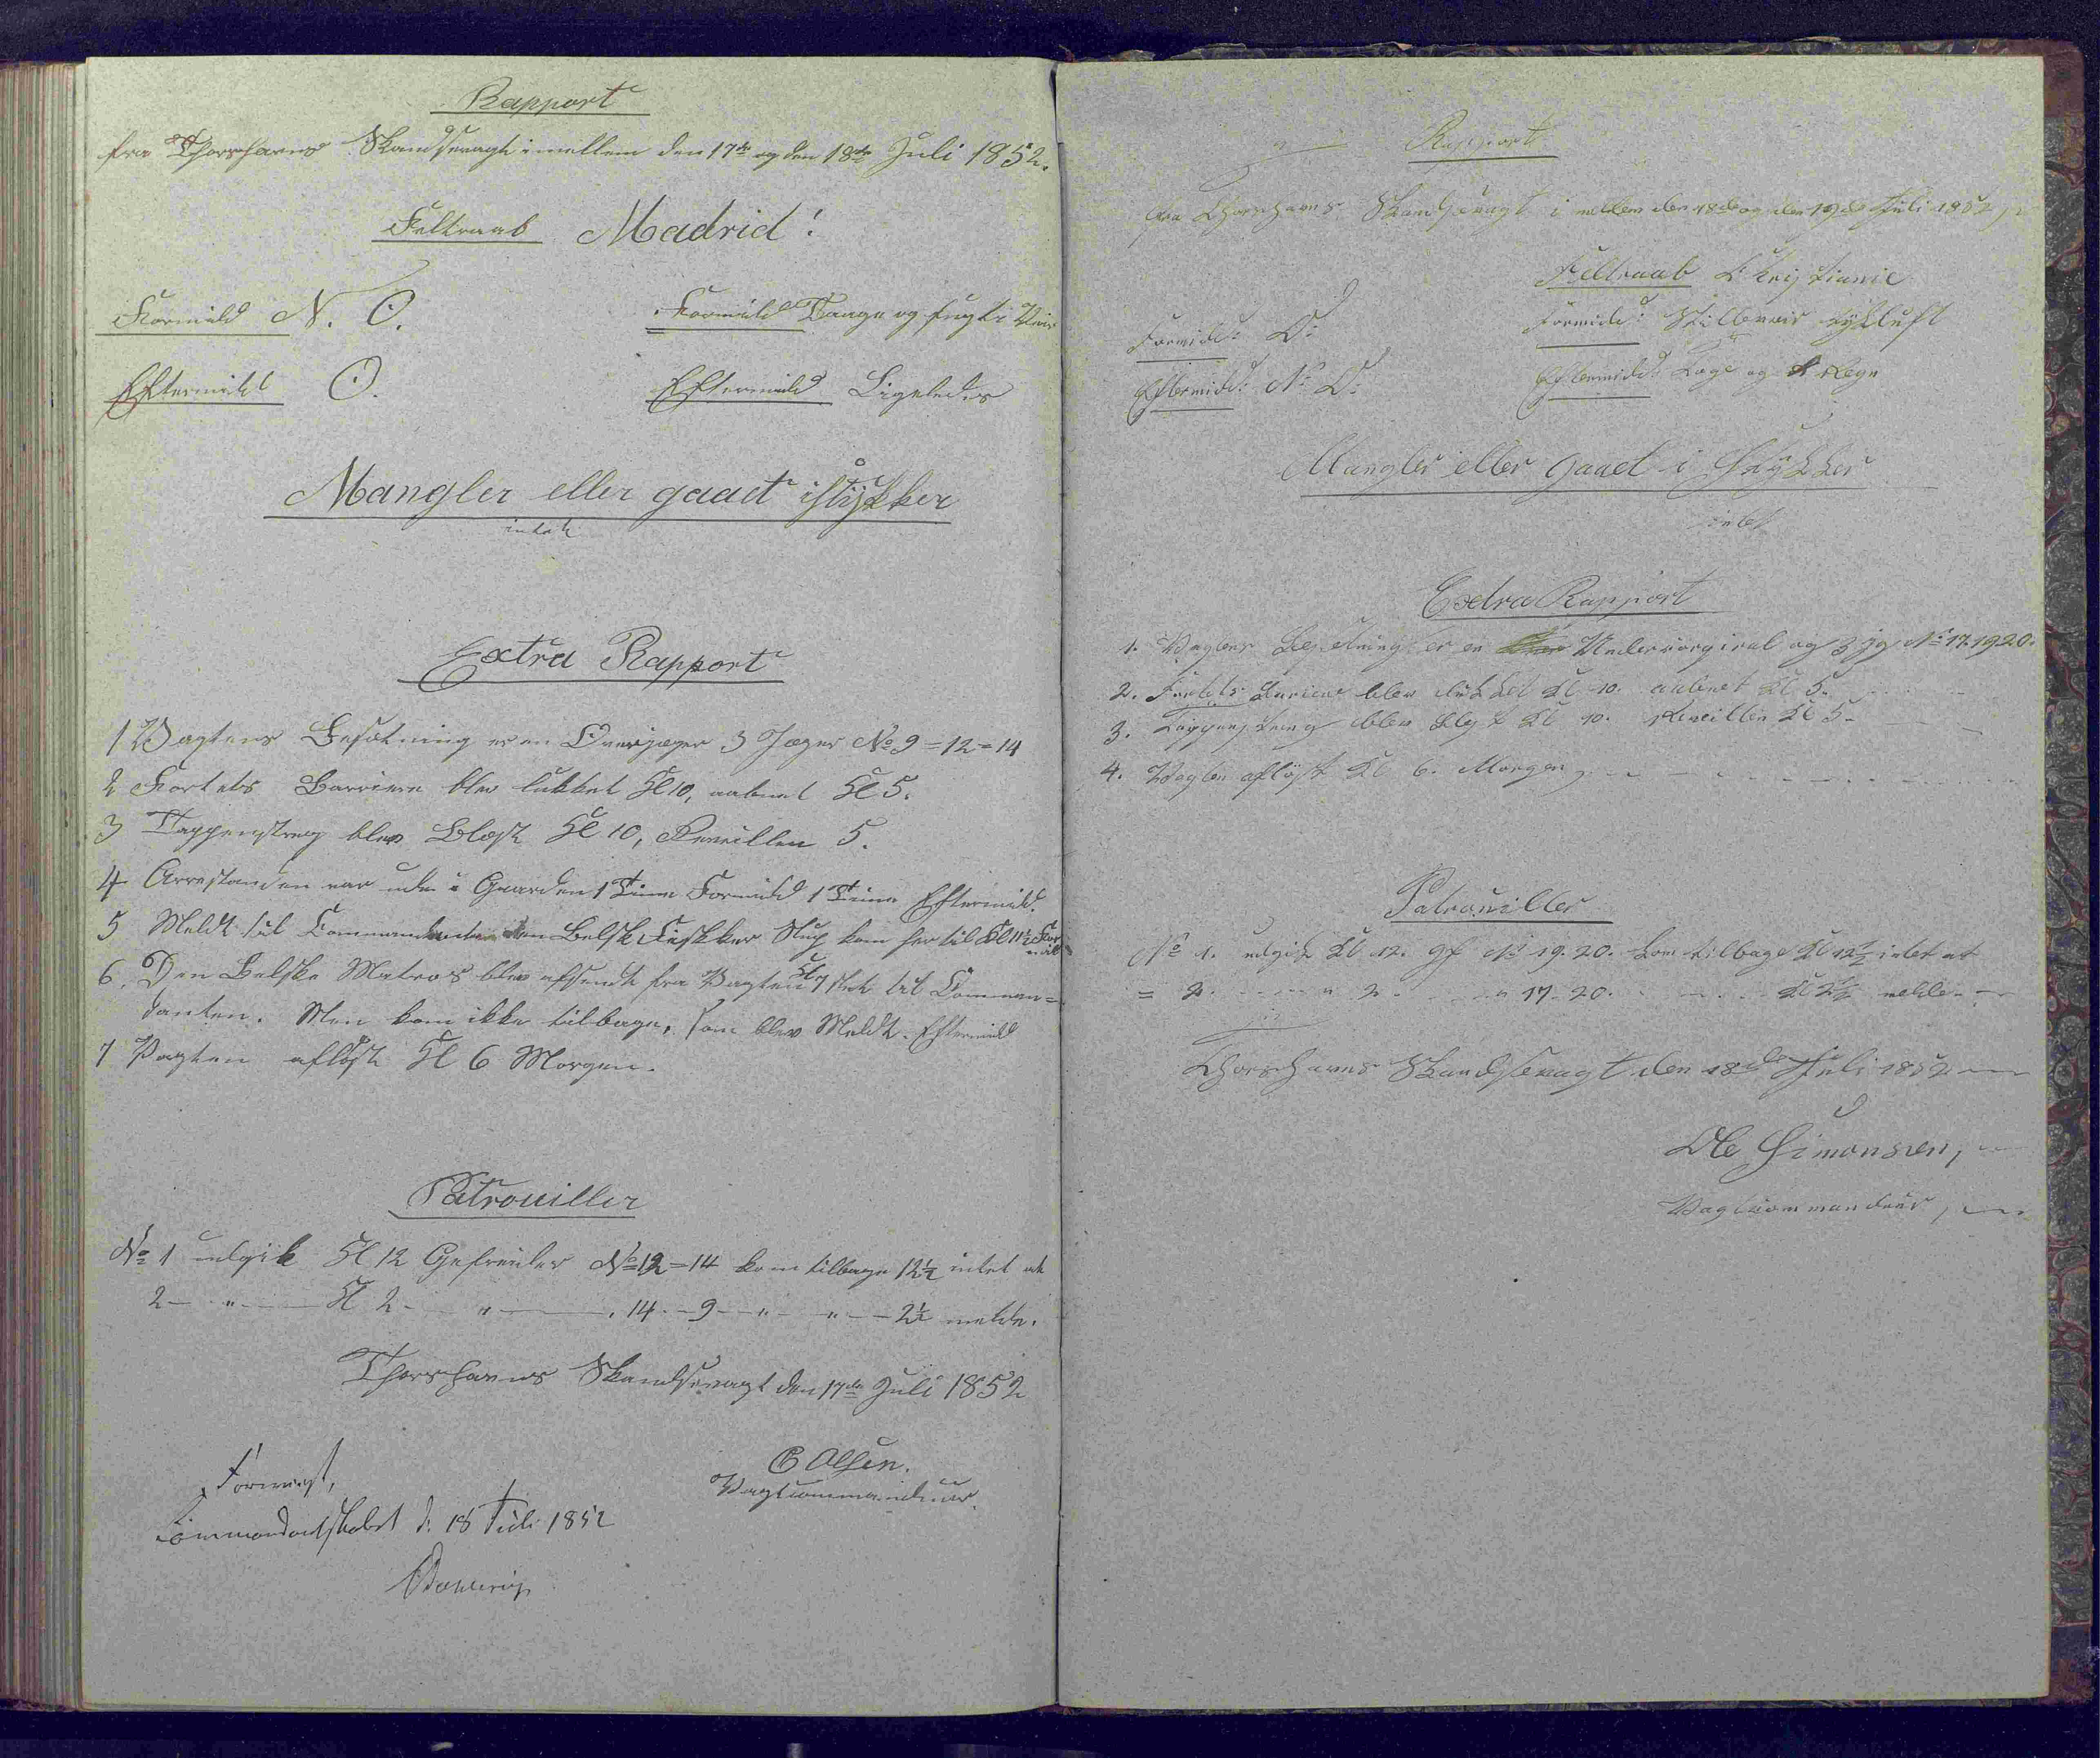 Rapport
fra Thorshavns Skandsevagt imellem den 17de og den 18de Juli 1852.
Feltraab Madrid!
Formidd N. O.
Formidd Taage og fugti Veir
Eftermidd O.
Eftermidd Ligeledes
Mangler eller gaaet istÿkker
intet
Extra Rapport
1 Vagtens Besætning er en Overjæger 3 Jæger No 9 = 12 = 14
2 Fortets Barriere blev lukket Kl 10, aabnet Kl 5.
3 Tappenstreg blev Blæst Kl 10, Reveillen 5.
4 Arrestanden var ude i Gaarden 1 Time Formidd 1 Time Eftermidd.
5 Meldt til Commandanten den Belsk Fiskker Slup kom her til Kl 11½ For
mid
6. Den Belske Matros blev afsendt fra Vagten Kl 7 til Comman=
danten. Men kom ikke tilbage, som blev Meldt. Eftermidd
7 Vagten afløst Kl 6 Morgen.
Patrouiller
No 1 udgik Kl 12 Gefreider No 12 = 14 kom tilbage 12½ intet at
2 — " — Kl 2 — " — . 14 — 9 — " — " — 2½ melde.
Thorshavns Skandsevagt den 17de Juli 1852
Olsen.
Vagtcommandeur.
Foreviist,
Commandantskabet d. 18 Juli 1852
Dahlerup
Rapport
fra Thorshavns Skandsevagt i mellem den 18de og den 19de Juli 1852
Feltraab Christianie
Formidd: O:
Formidd: Stilleveir tykluft
Eftermidd: N: O:
Eftermidd: Toge og Regn
Mangler eller gaaet i Stÿkker
intet
Extra Rapport
1. Vagtens Besetning er en Undercorpiral og 3 jg No 17. 19 20.
2. Fortets Bariere blev lukket Kl 10. aabnet Kl 5.
3. Tappenstreng blev blest Kl 10. Reveillen Kl 5 —
4. Vagten afløst Kl 6. Morgen
Patrouiller
No 1. udgik Kl 12. gf No 19. 20. kom tilbage Kl 12½ intet at
= 2. — " 2 — " 17 - 20. — Kl 2½ melde.
Thorshavns Skandsevagt den 18de Juli 1852
Ole Simonsen,
Vagtcommandeur,